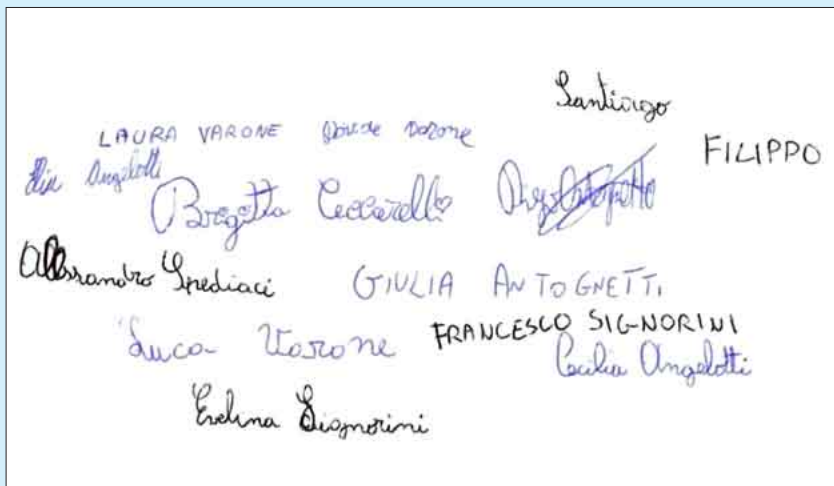 Santiago
LAURA VARONE Davide Varone
FILIPPO
Angelotti
Brigitta Ceccarelli
Alessandro Spediaci
GIULIA ANTOGNETTI
Luca Varone
FRANCESCO SIGNORINI
Cecilia Angelotti
Evelina Signorini